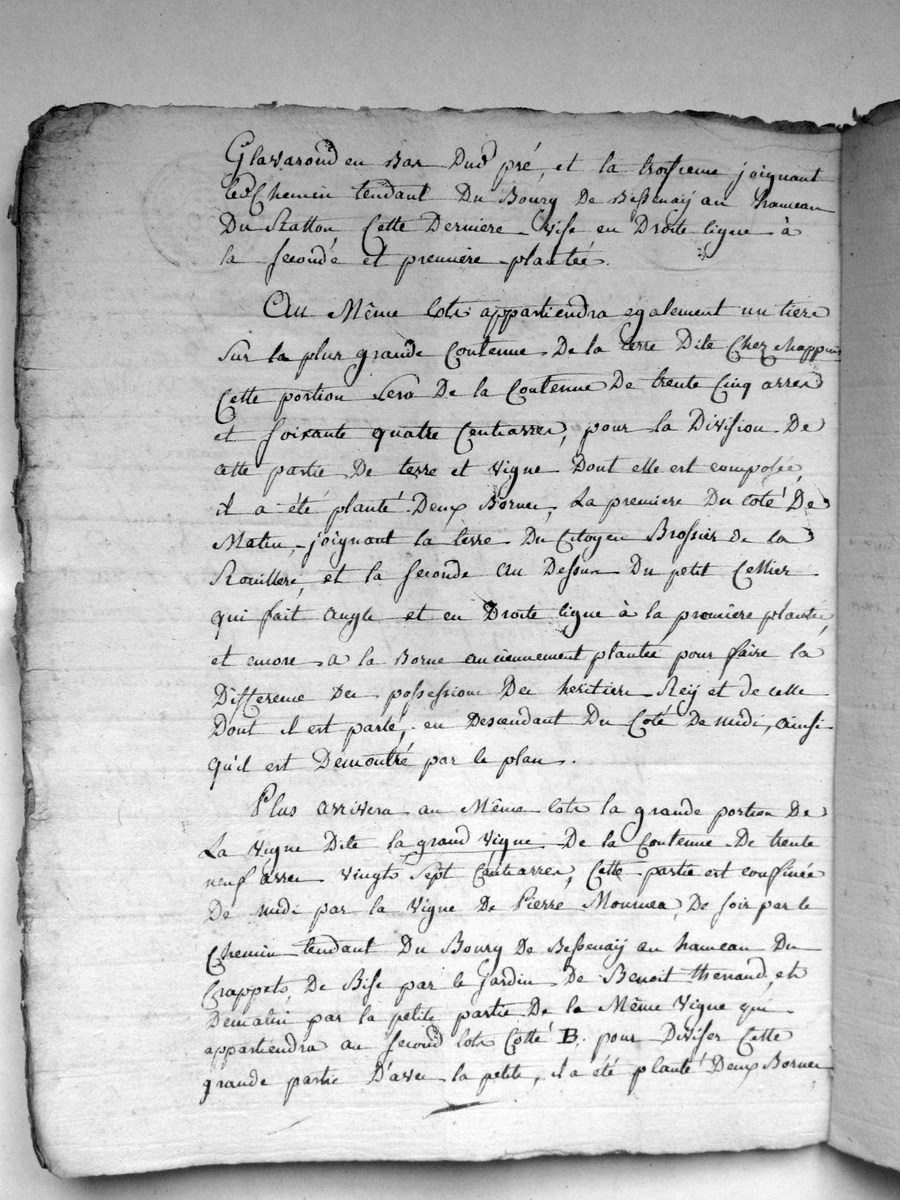 Glavaroud en Bas Dud pré, et la troisieme joignant
led Chemin tendant Du Bourg De Bessenaÿ au hameau
Du Ratton Cette Derniere vise en Droite ligne à
la seconde et premiere plantée.
Au Même lots appartiendra également un tiers
Sur la plus grande Contenue De la terre Dite Chez Chappuis
Cette portion sera De la Contenue De trente Cinq arres
et soixante quatre Centiarres, pour la Division De
cette partie De terre et vigne Dont elle est composée,
il a été planté Deux Bornes, La premiere Du Coté De
Matin, joignant la terre Du Citoyen Brossier de la
Rouillere, et la seconde au Dessus Du petit Cellier
qui fait angle et en Droite ligne à la premiere plantée,
et encore a la Borne anciennement plantée pour faire la
Difference Des possessions Des heritiers Reÿ et de celle
Dont il est parlé, en Descendant Du Coté De midi, ainsi
qu'il est Démontré par le plan.
Plus arrivera au Même lots la grande portion De
La vigne Dite la grand vigne De la Contenue De trente
neuf arres vingts sept Centiarres, Cette partie est confinée
De midi par la vigne De Pierre De soir par le
Chemin tendant Du Bourg De Bessenaÿ au hameau Du
Crappets, De Bise par le Jardin De Benoit thenaud, et
De matin par la petite partie De la Même vigne qui
appartiendra au second lots Cotté B. pour Diviser Cette
grande partie D'avec la petite, il a été planté Deux Bornes